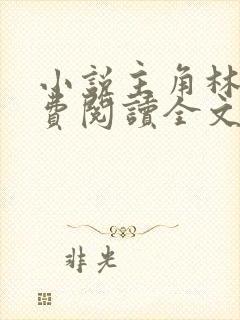 小說主角林
費閱讀全文
非光